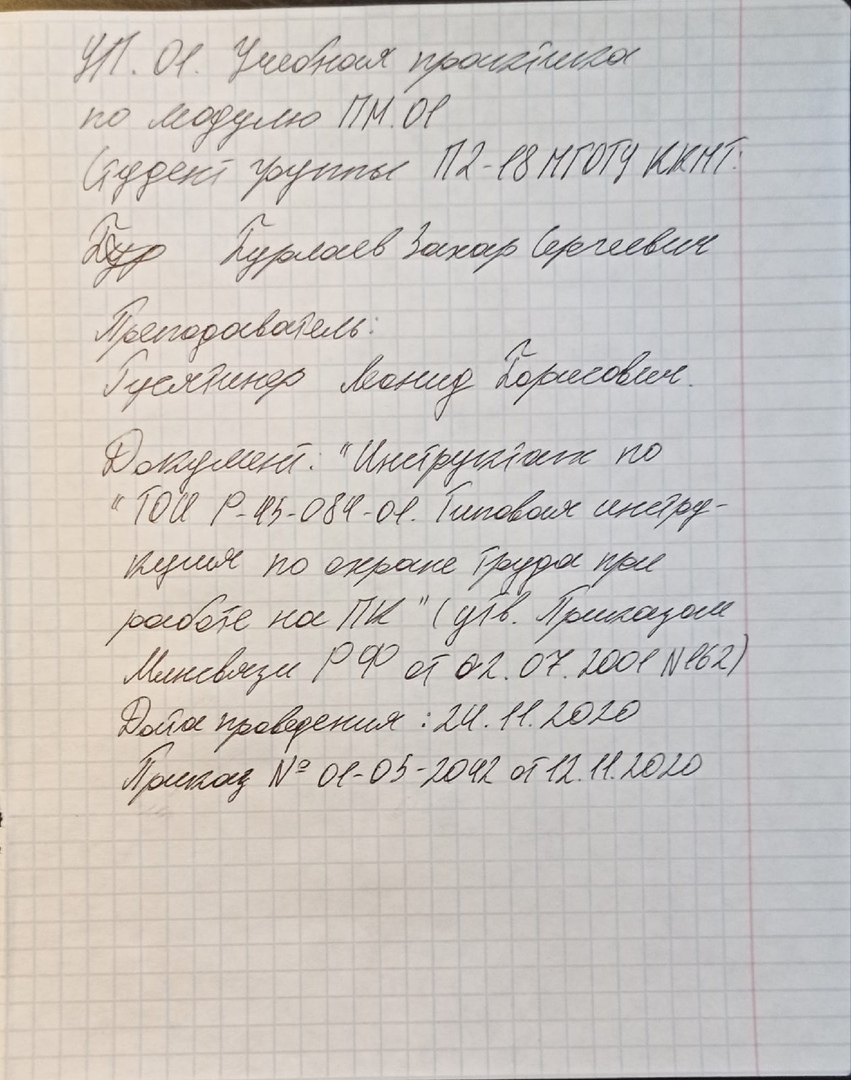 УП. 01. Учебная практика
по модулю ПМ.01
Студент группы П2-18 МГОТУ ККМТ:
Бурлаев Захар Сергеевич
Преподаватель:
Гусятинер Леонид Борисович.
Документ: "Инструктаж по
"ТОИ Р-45-084-01. Типовая инстру-
кция по охране труда при
работе на ПК" (утв. Приказом
Минсвязи РФ от 02.07.2001 №162)
Дата проведения: 24.11.2020
Приказ № 01-05-2042 от 12.11.2020